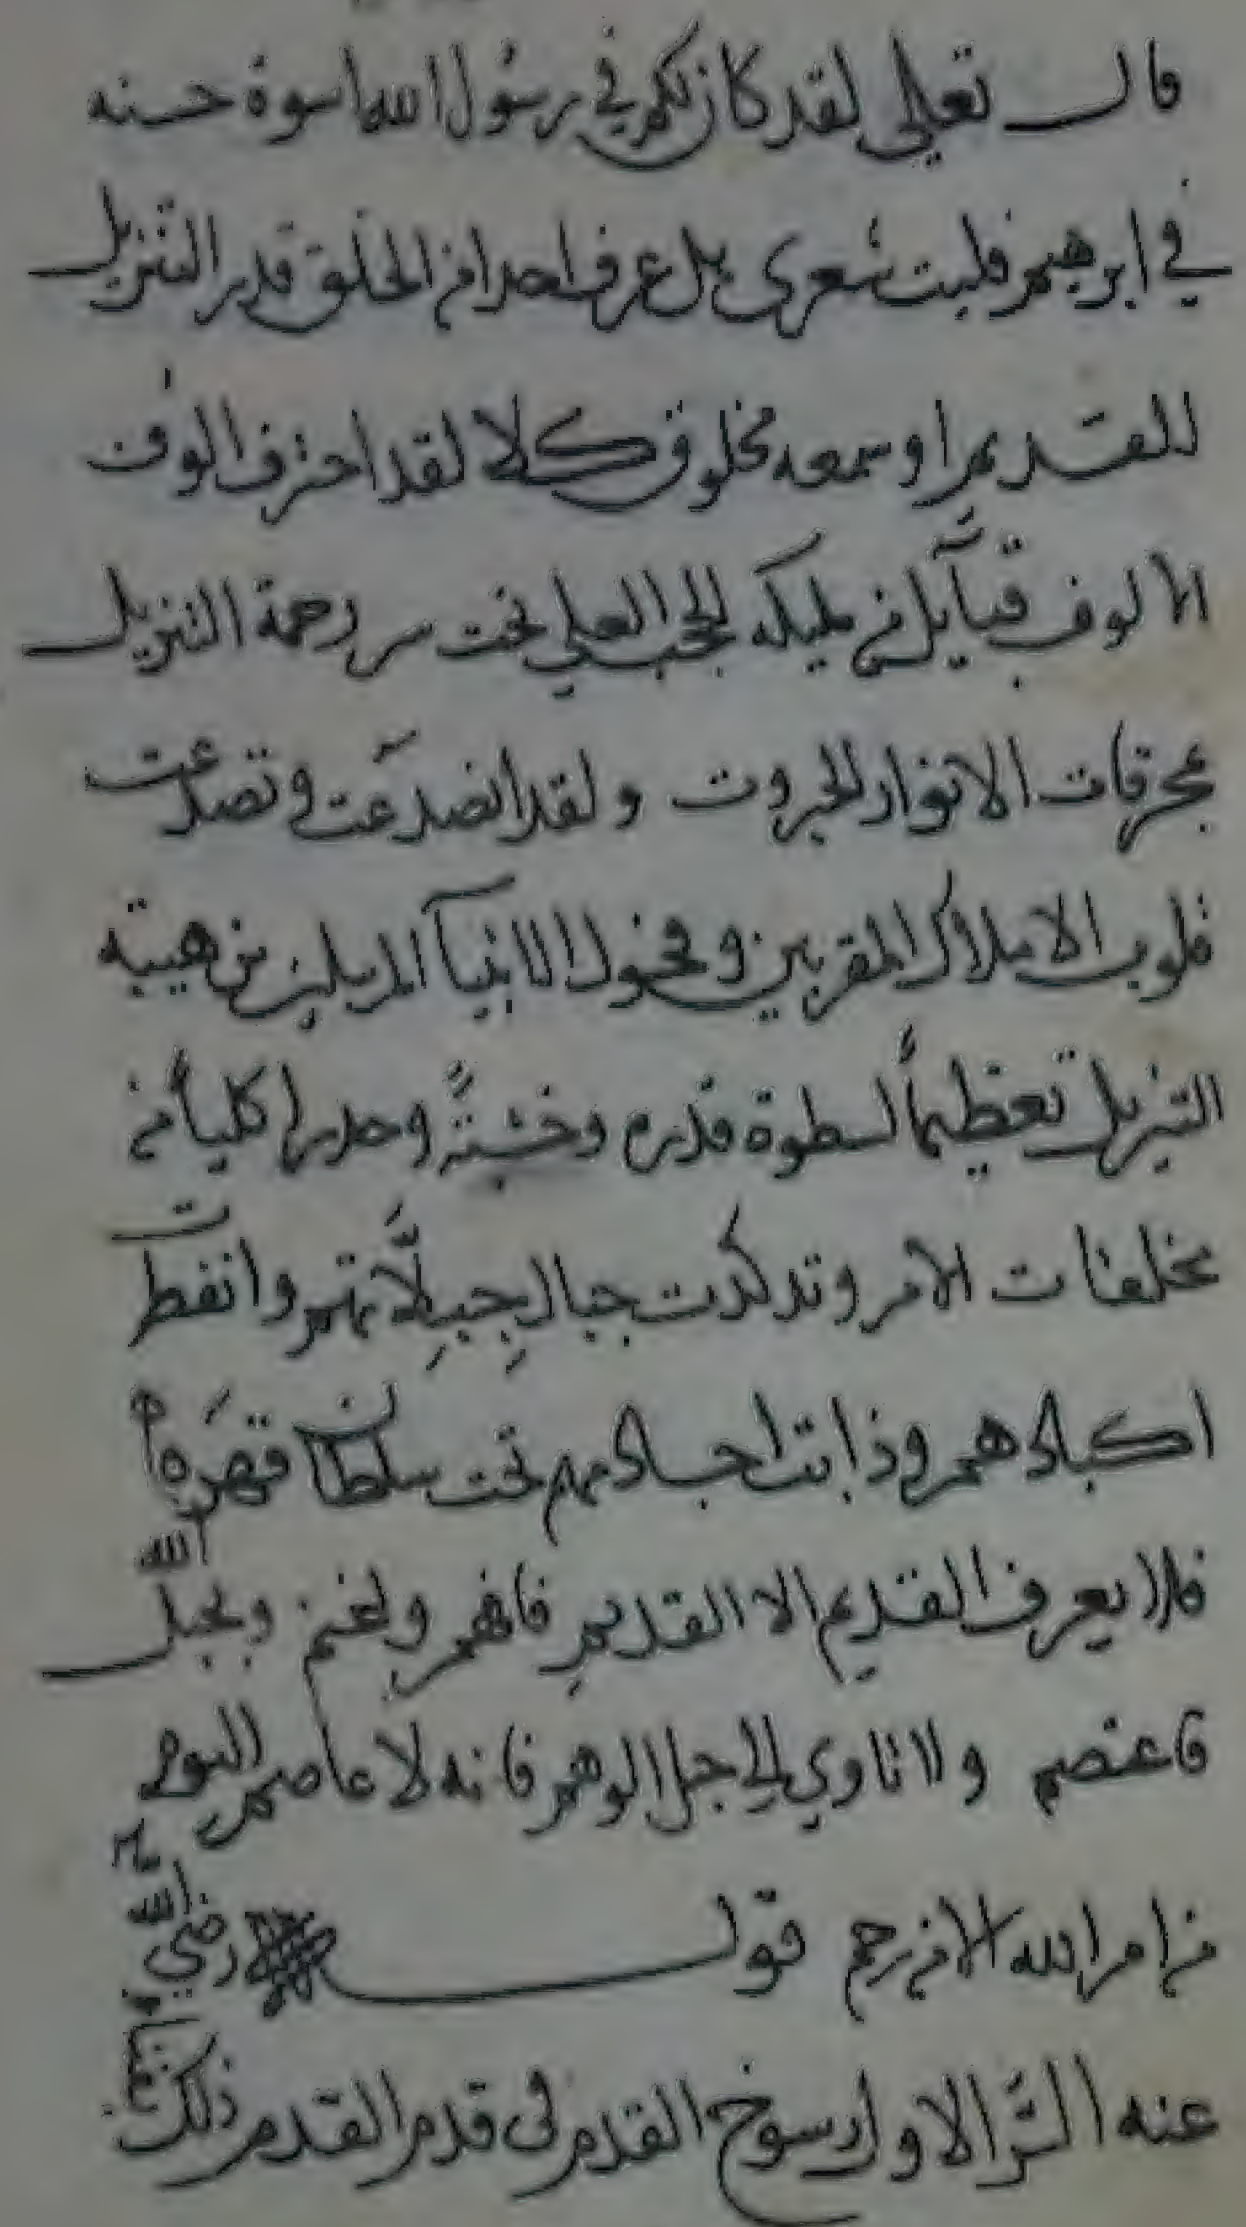 قال تعالى لقد كان لكم في رسول الله اسوة حسنه
في ابرهيم فليت شعرى هل عرف احدا من الخلق قدر التنزيل
للقديم او سمعه مخلوق كلا لقد احترق الوف
الالوف قبآيل من مليكه الحجب العلى تحت سر رحمة التنزيل
بمحرقات الانوار الجبروت ولقد انصدعت وتصدعت
قلوب الاملاك المقربين وفحول الانبيآ المرسلين من هيبته
التنزيل تعظيماً لسطوة قدره وخشيةً وحدرا كلياً من
مخلفات الامر وتدكدكت جبال جِبِلاَّتهم وانفطرت
اكبادهم وذابت اجسادهم تحت سلطان قهره
فلا يعرف القديم الا القديم فافهم ولغنم وبحبل الله
فاعتصم ولا تاوي الى جبل الوهم فانه لا عاصم اليوم
من امر الله الا من رحم قوله رضي الله
عنه السِّر الاول رسوخ القدم في قدم القدم ذلك